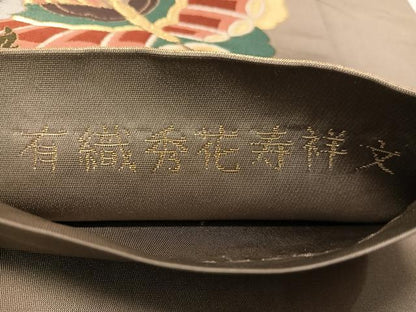 有織秀花寿祥文